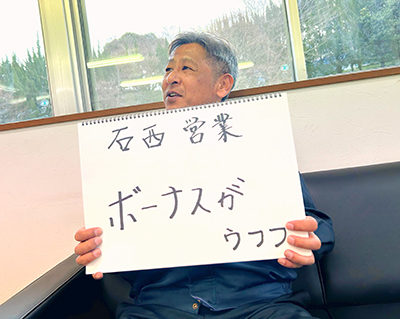 石西 営業
ボーナスが
ウフフ